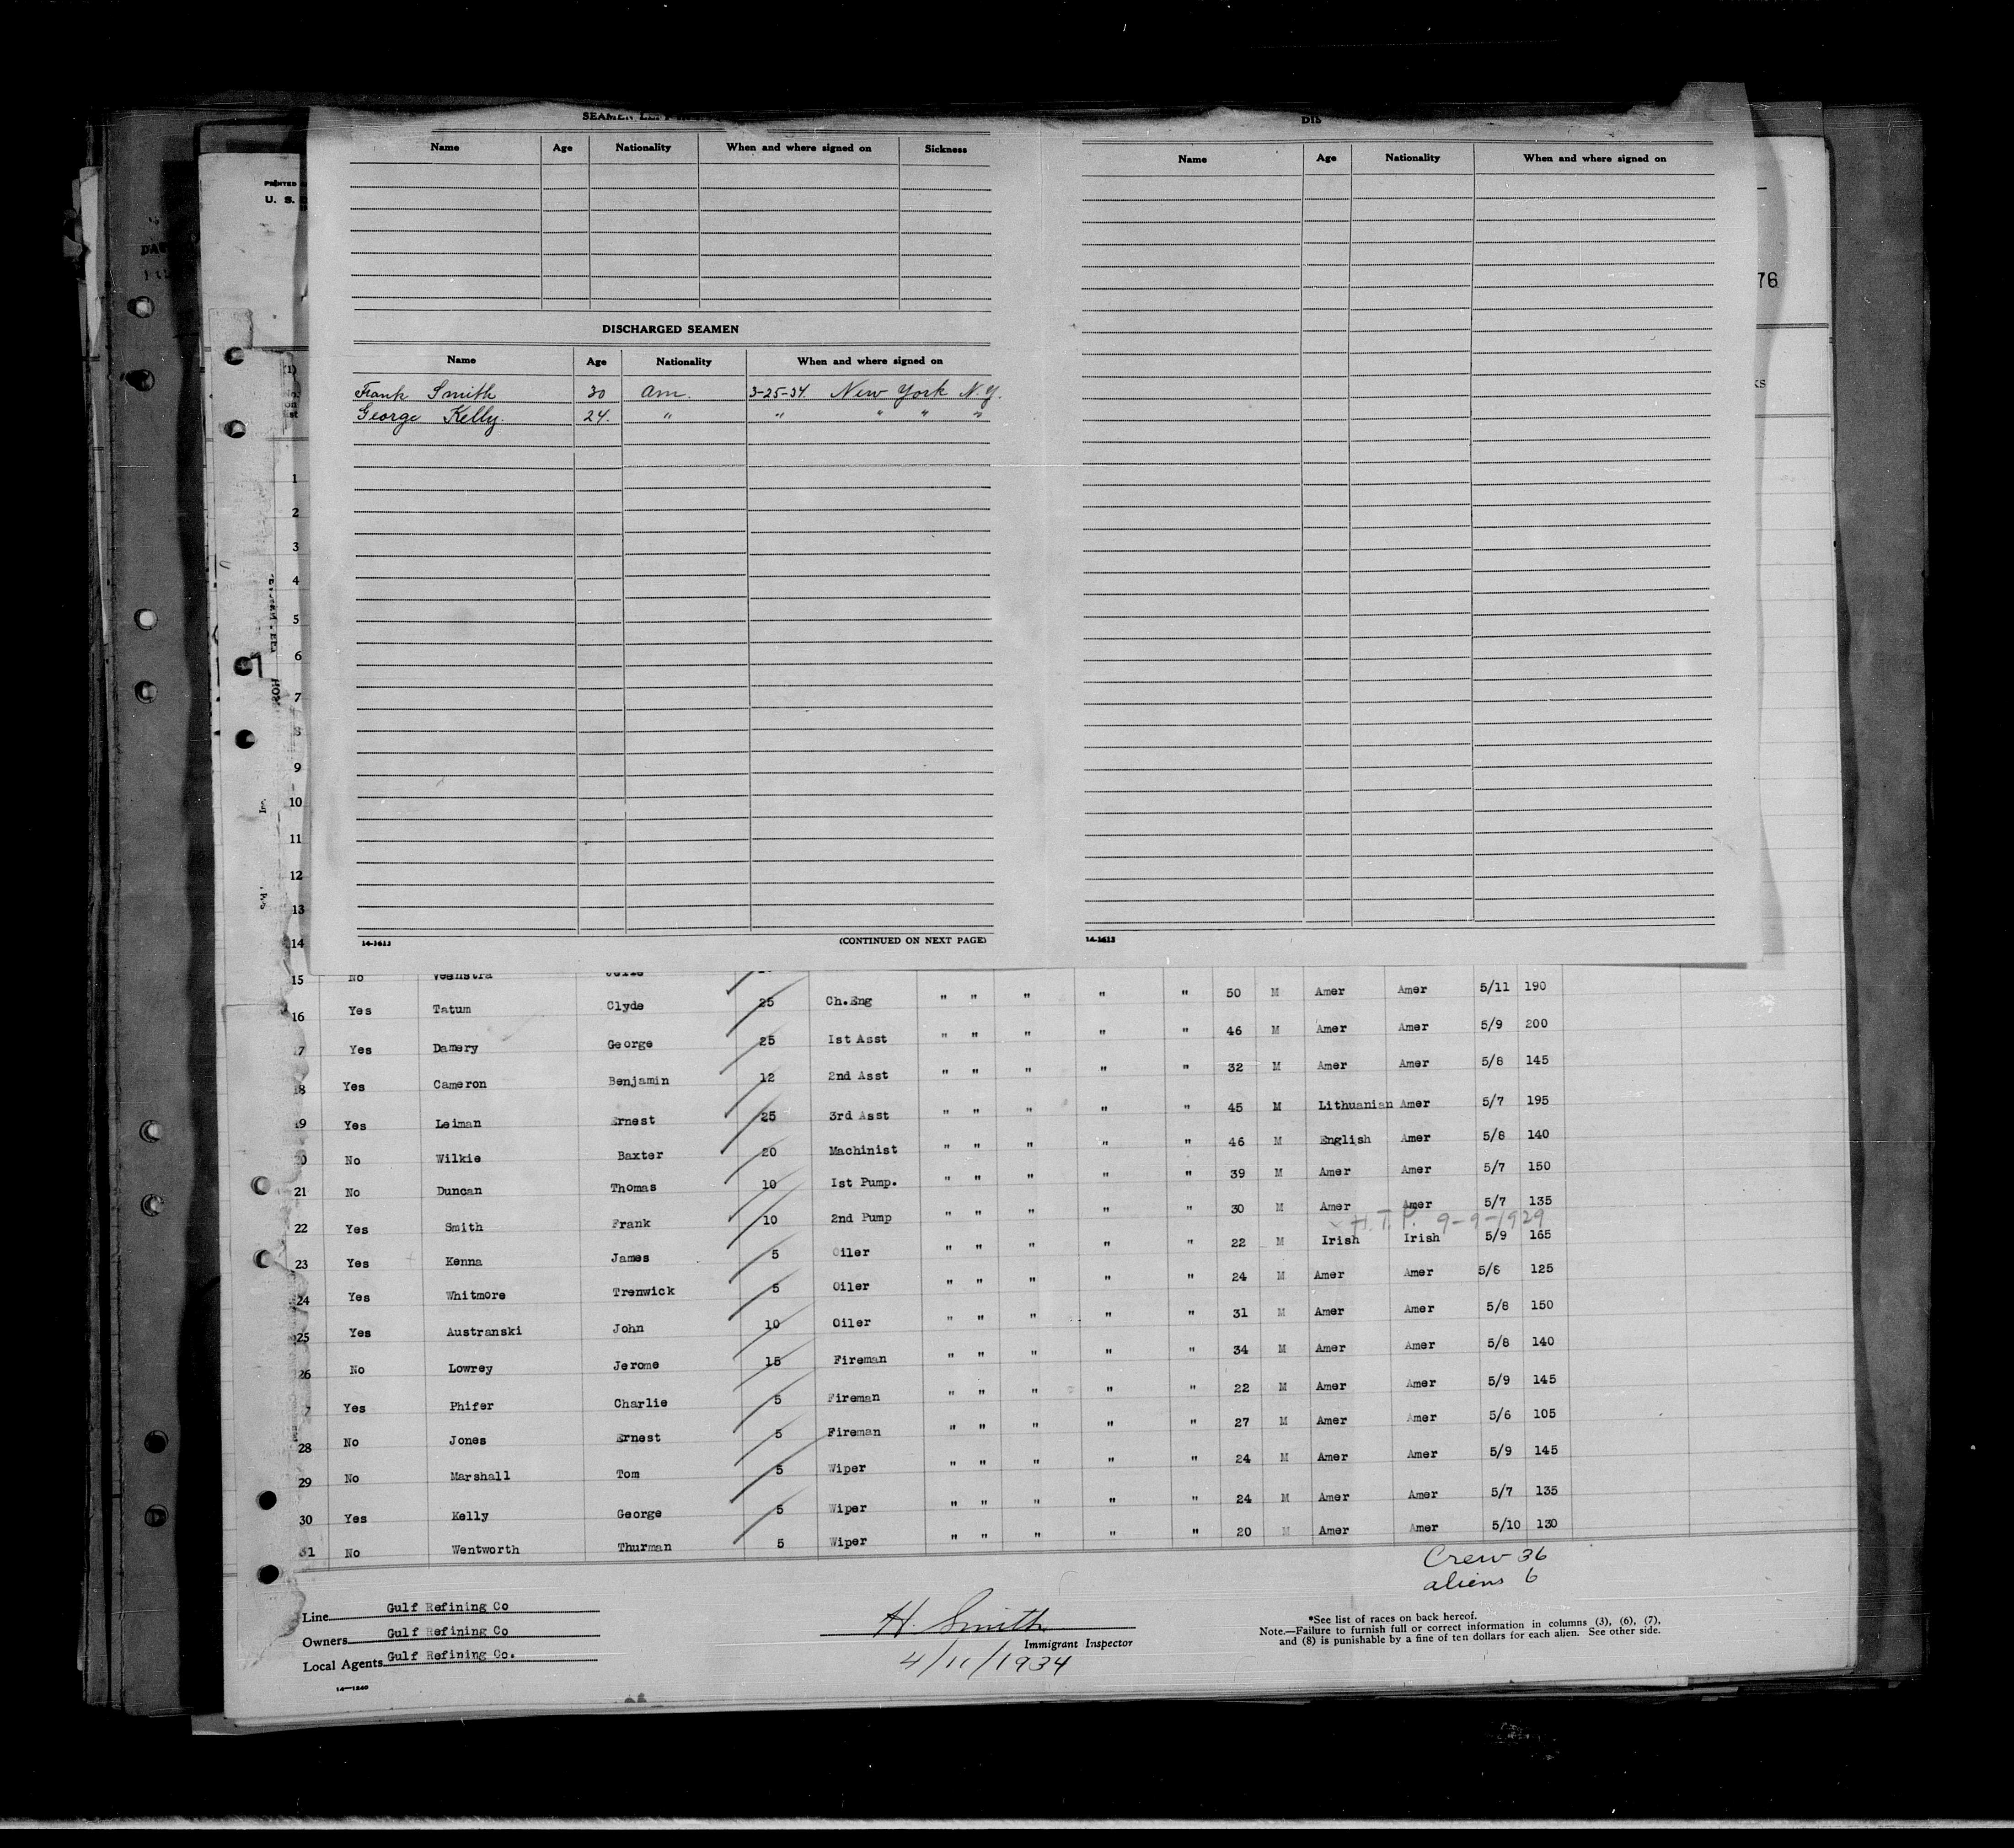 SEAMEN
Name Age Nationality When and where signed on Sickness
DISCHARGED SEAMEN
Name Age Nationality When and where signed on
Frank Smith 30 Am. 3-25-34. New York N.Y.
George Kelly. 24. " " " " "
14-1613 (CONTINUED ON NEXT PAGE)
DIS
Name Age Nationality When and where signed on
14-1613
PRINTED
U. S.
76
ks
1
2
3
4
5
6
7
8
9
10
11
12
13
14
15 No Voenstra
16 Yes Tatum Clyde 25 Ch.Eng " " " " " 50 M Amer Amer 5/11 190
17 Yes Damery George 25 1st Asst " " " " " 46 M Amer Amer 5/9 200
18 Yes Cameron Benjamin 12 2nd Asst " " " " " 32 M Amer Amer 5/8 145
19 Yes Leiman Ernest 25 3rd Asst " " " " " 45 M Lithuanian Amer 5/7 195
20 No Wilkie Baxter 20 Machinist " " " " " 46 M English Amer 5/8 140
21 No Duncan Thomas 10 1st Pump. " " " " " 39 M Amer Amer 5/7 150
22 Yes Smith Frank 10 2nd Pump " " " " " 30 M Amer Amer 5/7 135
H.T.P. 9-9-1929
23 Yes Kenna James 5 Oiler " " " " " 22 M Irish Irish 5/9 165
24 Yes Whitmore Trenwick 5 Oiler " " " " " 24 M Amer Amer 5/6 125
25 Yes Austranski John 10 Oiler " " " " " 31 M Amer Amer 5/8 150
26 No Lowrey Jerome 15 Fireman " " " " " 34 M Amer Amer 5/8 140
7 Yes Phifer Charlie 5 Fireman " " " " " 22 M Amer Amer 5/9 145
28 No Jones Ernest 5 Fireman " " " " " 27 M Amer Amer 5/6 105
29 No Marshall Tom 5 Wiper " " " " " 24 M Amer Amer 5/9 145
30 Yes Kelly George 5 Wiper " " " " " 24 M Amer Amer 5/7 135
31 No Wentworth Thurman 5 Wiper " " " " " 20 M Amer Amer 5/10 130
Crew 36
aliens 6
Line Gulf Refining Co
Owners Gulf Refining Co
Local Agents Gulf Refining Co.
14-1240
H. Smith
Immigrant Inspector
4/11/1934
*See list of races on back hereof.
Note.—Failure to furnish full or correct information in columns (3), (6), (7),
and (8) is punishable by a fine of ten dollars for each alien. See other side.